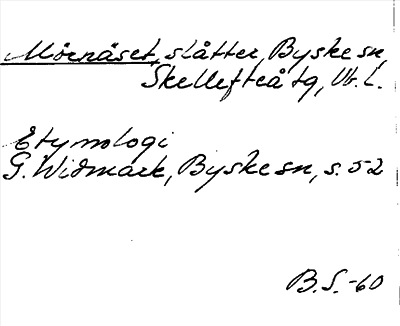 Mörnäset, slåtter, Byske sn,
Skellefteå tg, Vb. l.
Etymologi
G. Widmark, Byske sn, s. 52
B.S.-60